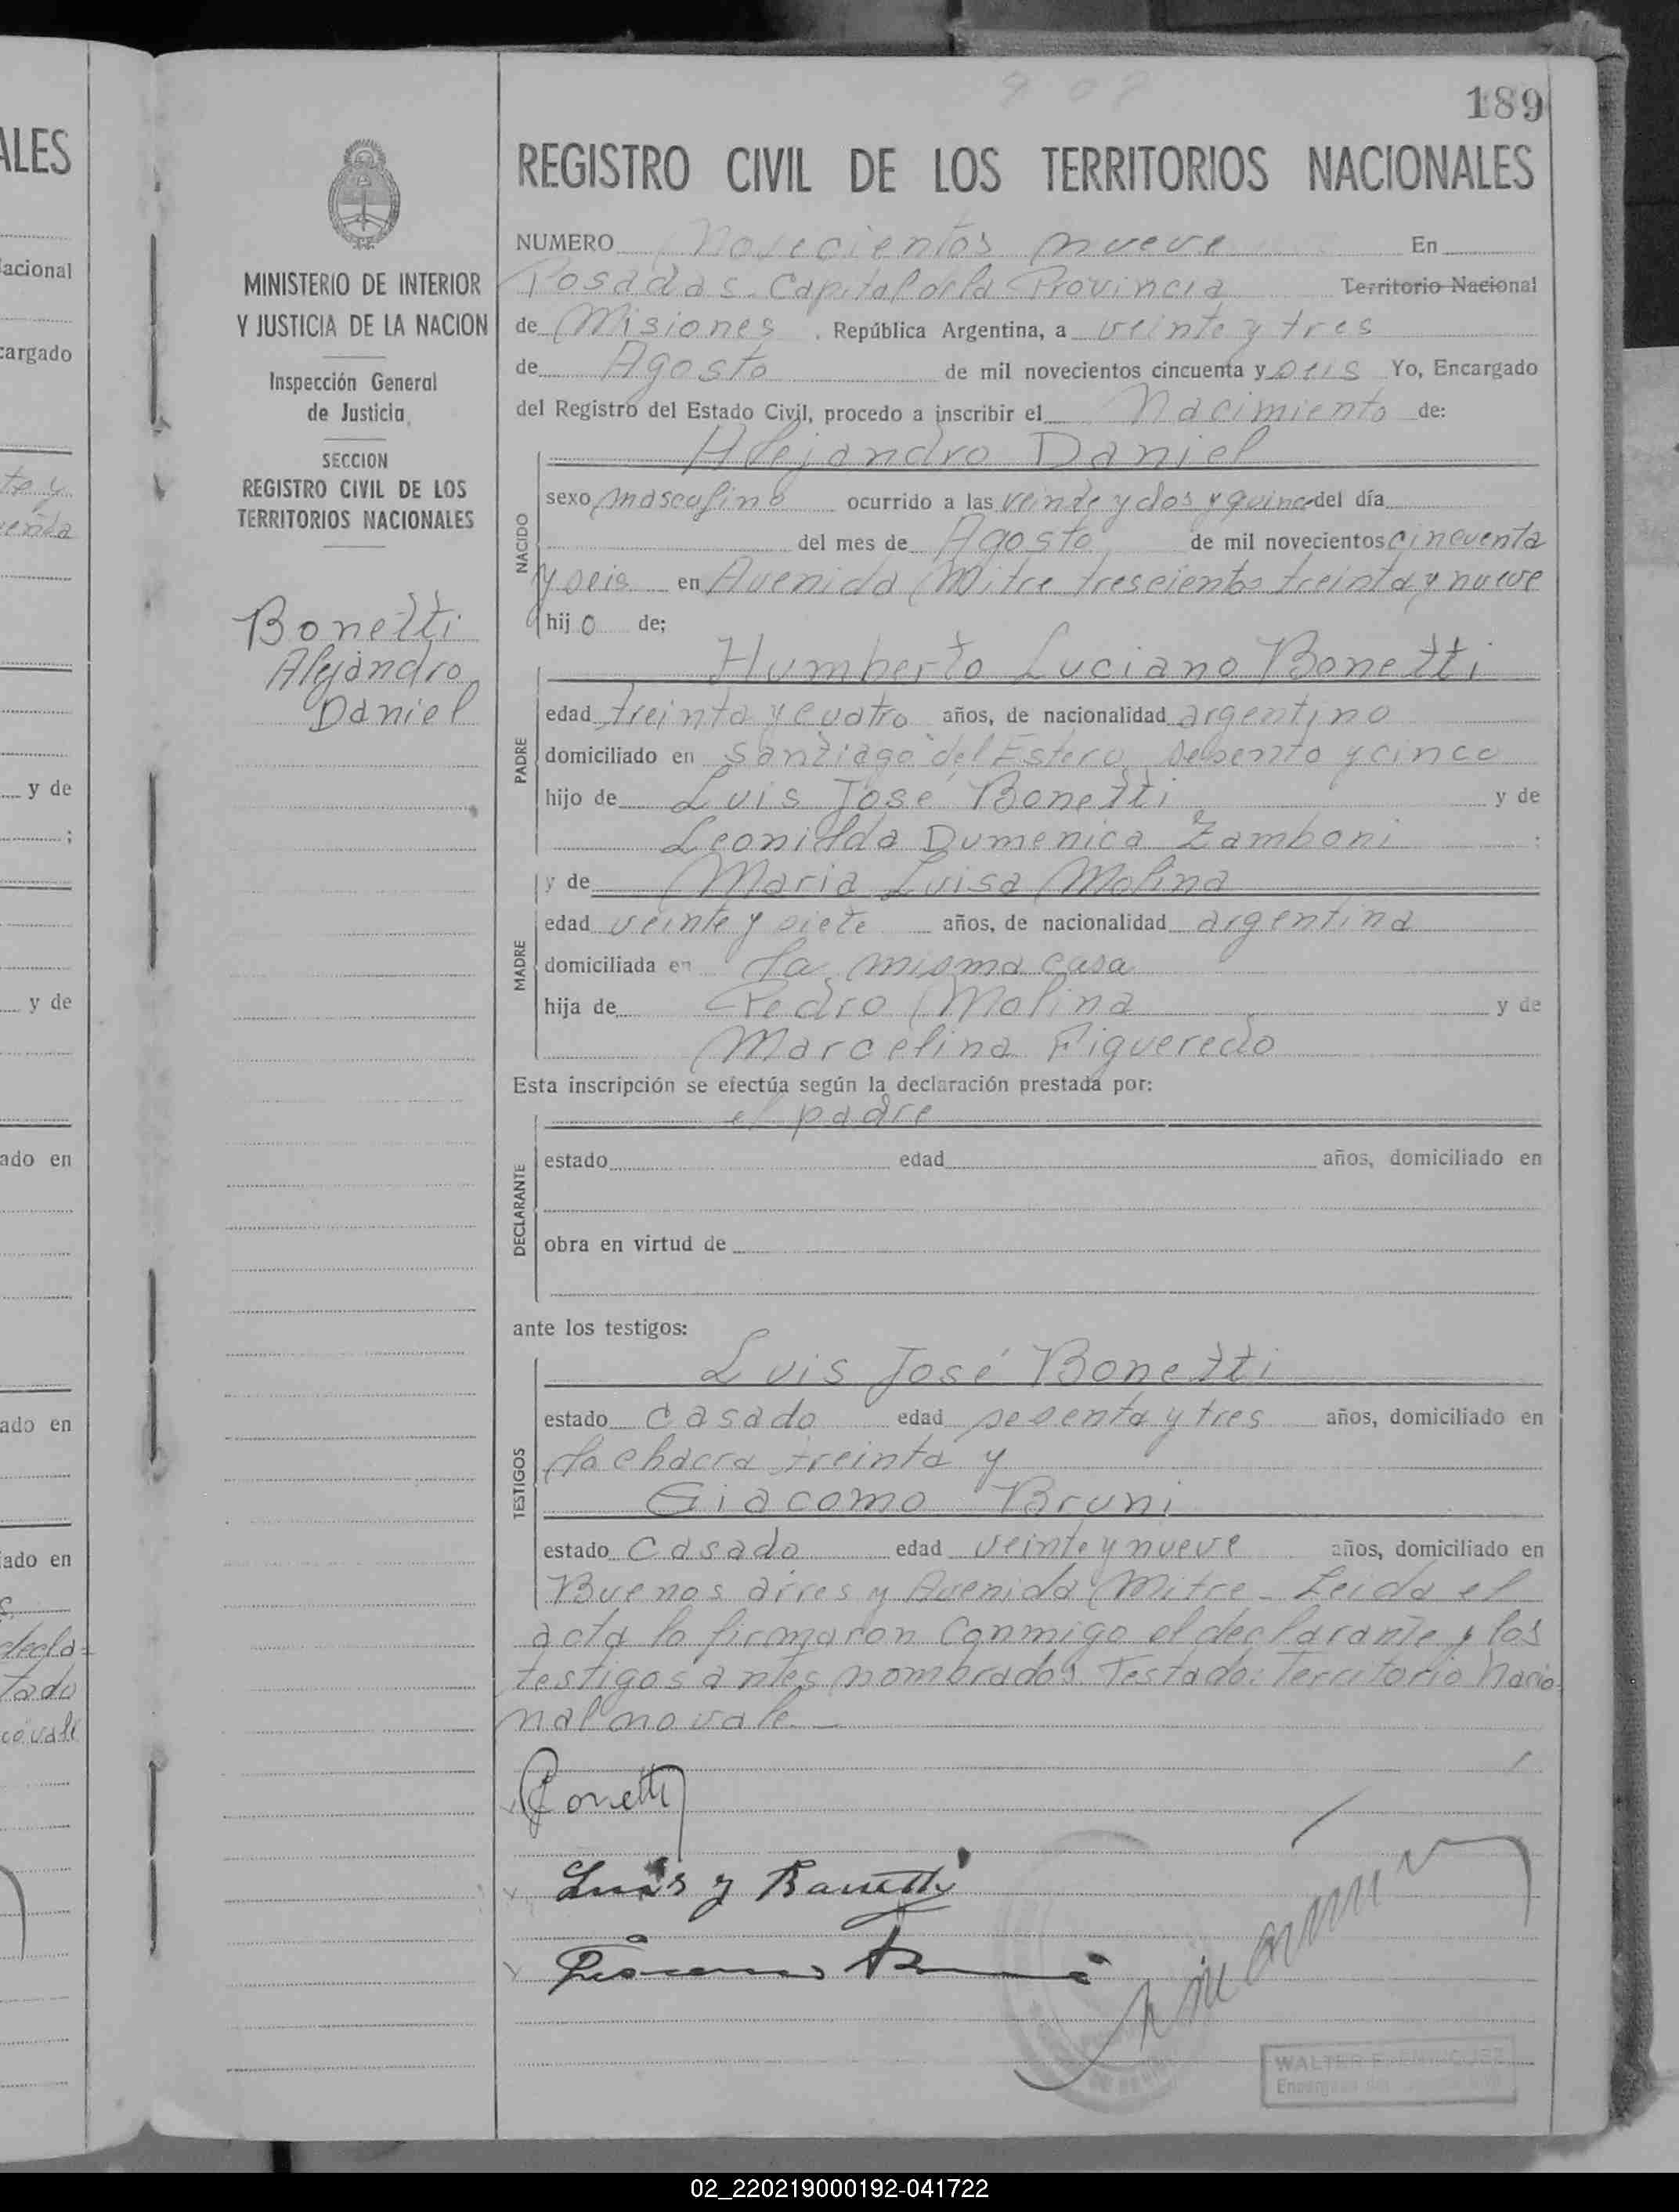 189
REGISTRO CIVIL DE LOS TERRITORIOS NACIONALES
NUMERO Novecientos nueve En
Posadas. Capital de la Provincia Territorio Nacional
de Misiones . República Argentina, a veinte y tres
de Agosto de mil novecientos cincuenta y seis Yo, Encargado
del Registro del Estado Civil, procedo a inscribir el Nacimiento de:
Alejandro Daniel
NACIDO
sexo masculino ocurrido a las veinte y dos y quince del día
del mes de Agosto de mil novecientos cincuenta
y seis en Avenida Mitre trescientos treinta y nueve
hijo de;
Humberto Luciano Bonetti
PADRE
edad treinta y cuatro años, de nacionalidad argentino
domiciliado en Santiago del Estero sesenta y cinco
hijo de Luis José Bonetti y de
Leonilda Dumenica Zamboni
y de Maria Luisa Molina
MADRE
edad veinte y siete años, de nacionalidad argentina
domiciliada en la misma casa
hija de Pedro Molina y de
Marcelina Figueredo
Esta inscripción se efectúa según la declaración prestada por:
el padre
DECLARANTE
estado edad años, domiciliado en
obra en virtud de
ante los testigos:
Luis José Bonetti
TESTIGOS
estado casado edad sesenta y tres años, domiciliado en
la chacra treinta y
Giacomo Bruni
estado casado edad veinte y nueve años, domiciliado en
Buenos aires y Avenida Mitre - Leida el
acta la firmaron conmigo el declarante y los
testigos antes nombrados. Testado: Territorio Nacio
nal no vale. -
Bonetti
Luis J Bonetti
Giacomo Bruni
MINISTERIO DE INTERIOR
Y JUSTICIA DE LA NACION
Inspección General
de Justicia
SECCION
REGISTRO CIVIL DE LOS
TERRITORIOS NACIONALES
Bonetti
Alejandro
Daniel
ALES
acional
cargado
te y
y de
;
y de
ado en
ado en
ado en
decla=
tado
vale
02_220219000192-041722